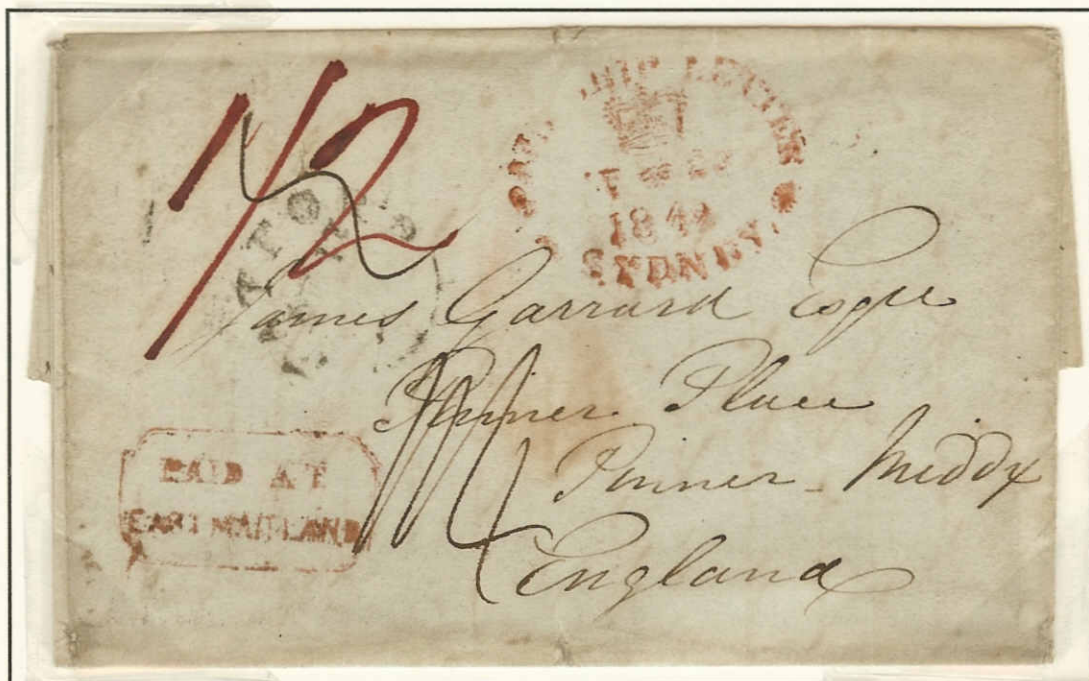 1/2
PAID SHIP LETTER
184
SYDNEY
James Garrard Esqre
Pinner Place
Pinner - Middx
England
PAID AT
EAST MAITLAND